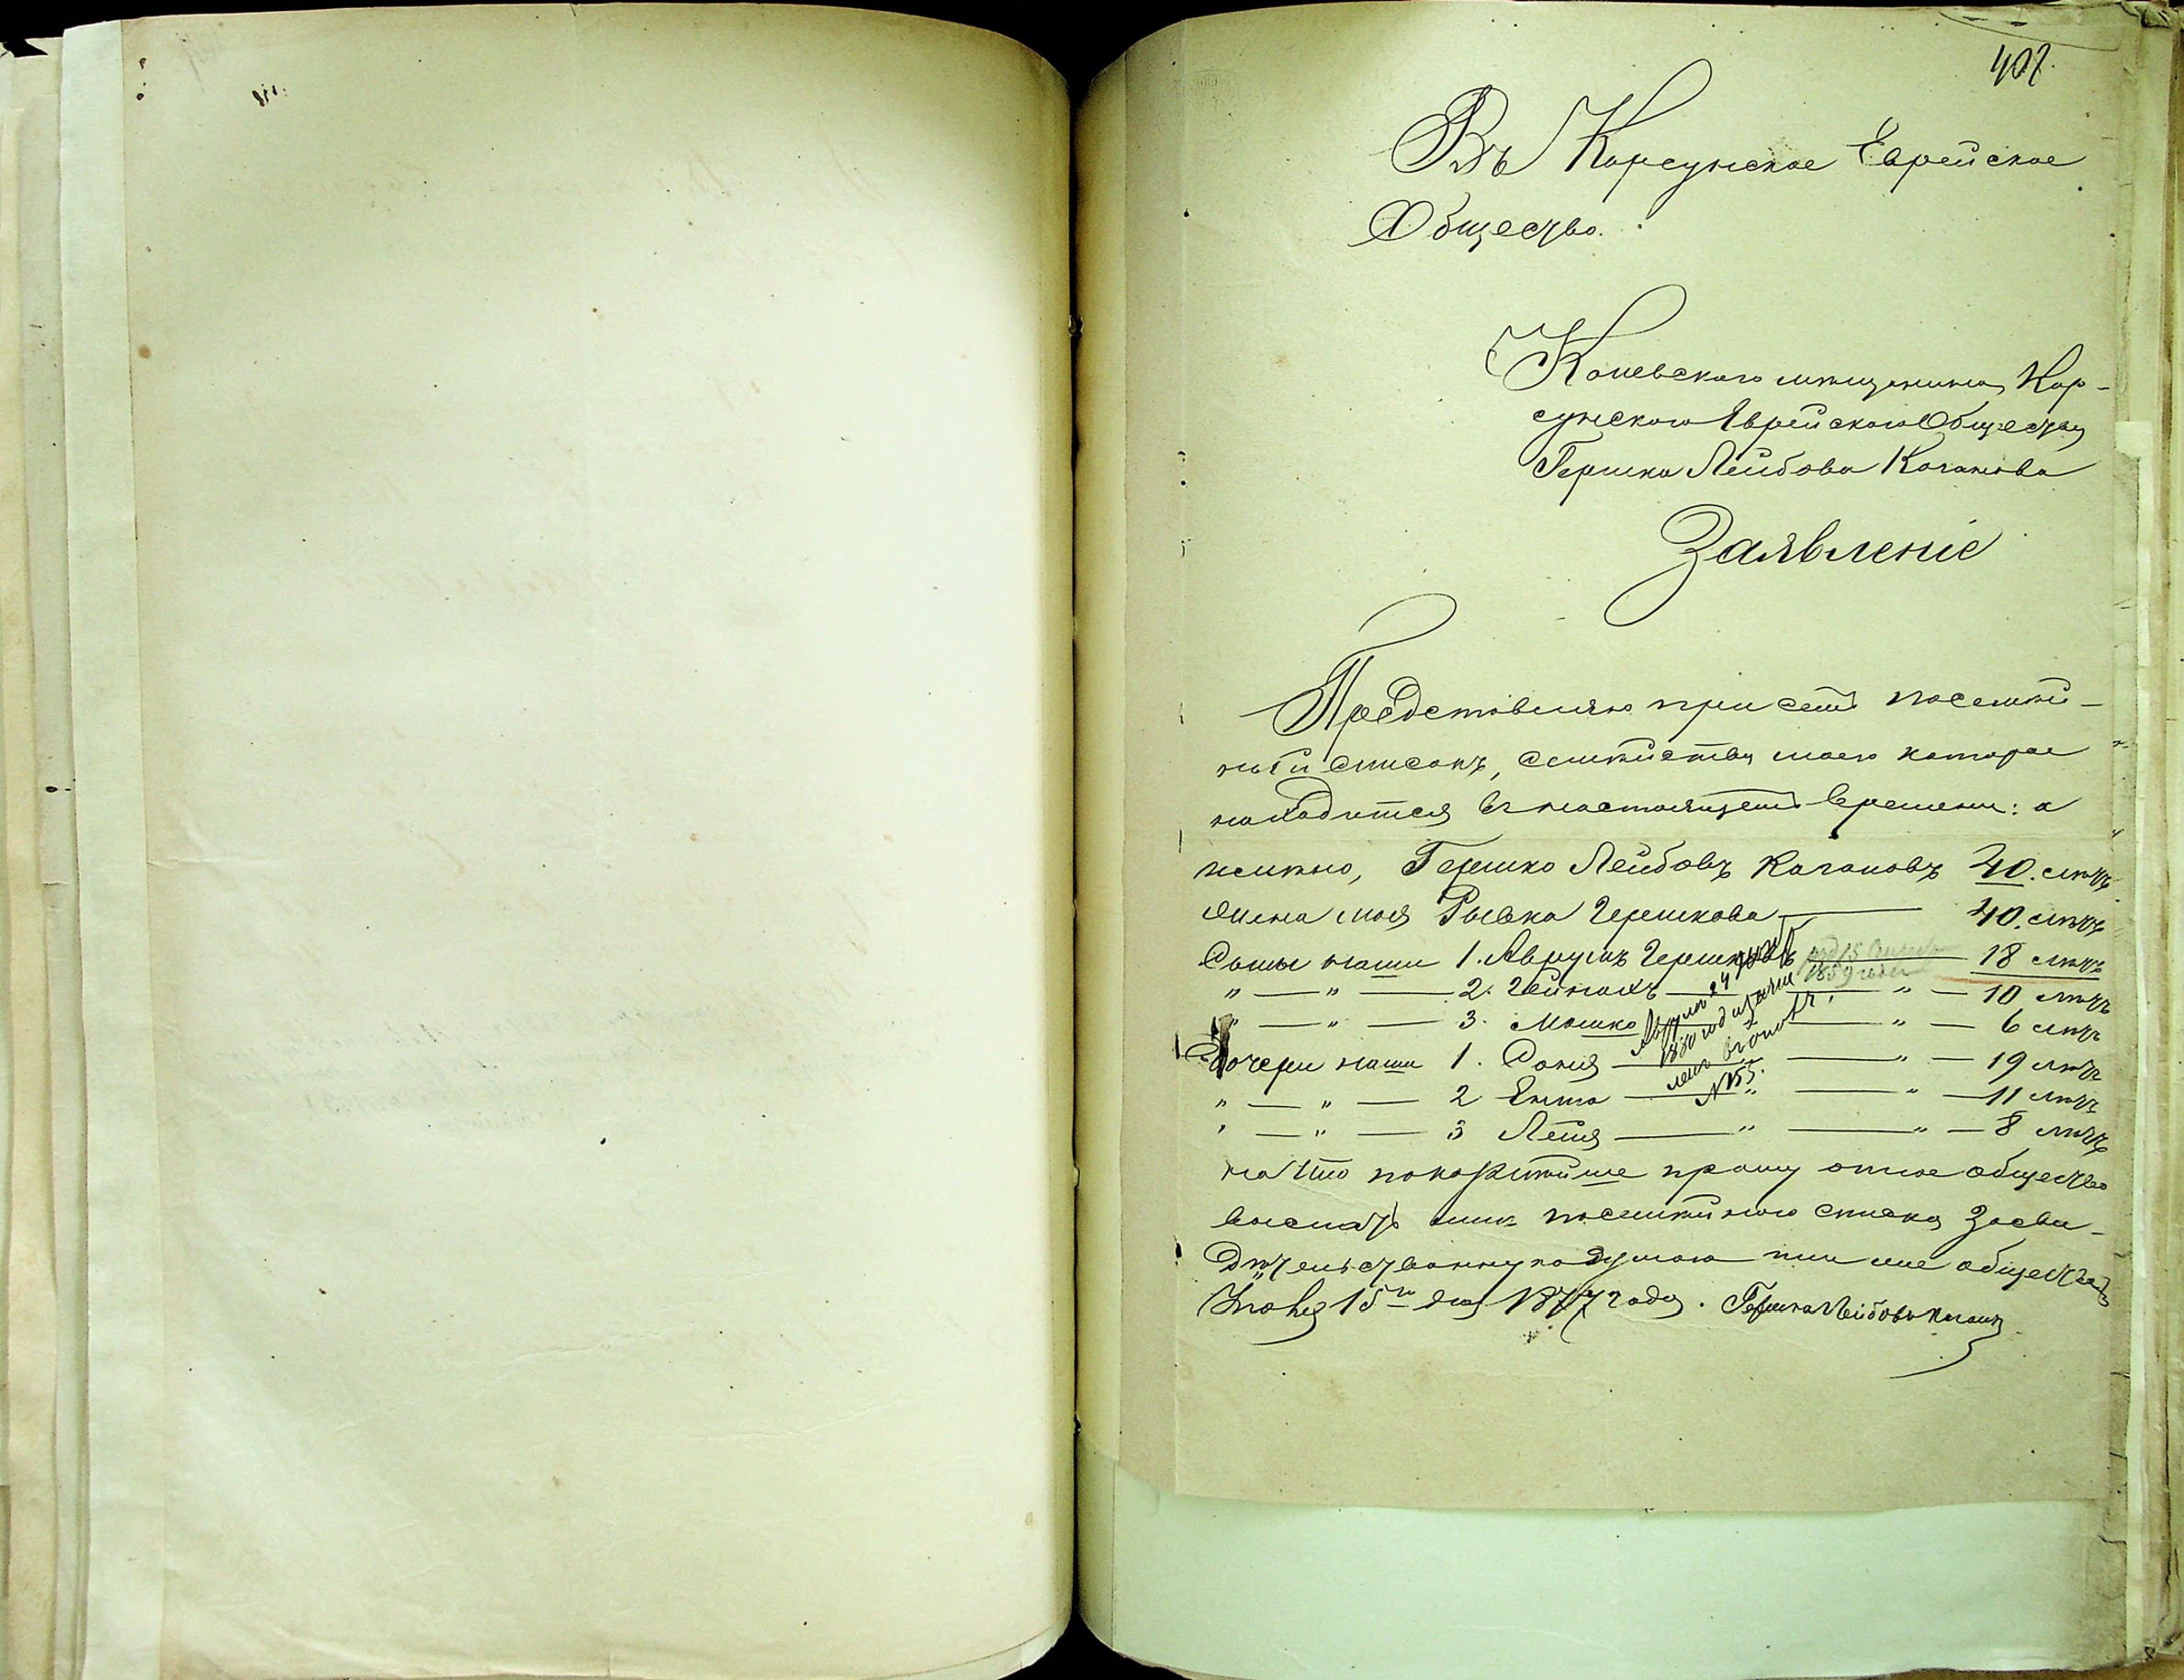 407.
Въ Корсунское Еврейское
Общество.
Каневскаго мѣщанина, Кор-
сунскаго Еврейскаго Общества
Гершка Лейбова Каганова
Заявленіе
Представляю при семъ посемѣй-
ный списокъ, семѣйства моего которое
находится въ настоящемъ времени: а
именно, Гершко Лейбовъ Кагановъ 40. лѣтъ
жена моя Рывка Гершкова — 40. лѣтъ
Сыны наши 1. Аврумъ Гершковъ — 18 лѣтъ
1859 года
" — " — 2. Гейнахъ — " — 10 лѣтъ
" — " — 3. Мошко — " — 6 лѣтъ
Аврумъ 24
1880 год
№ 155.
Дочери наши 1. Соня — " — 19 лѣтъ
" — " — 2 Ента — " — " — 11 лѣтъ
" — " — 3 Лея — " — " — 8 лѣтъ
на что покорнѣйше прошу оное общество
выслать мнѣ посемѣйного списка Засви-
дѣтельствованную думою или общества
15го дня 1877 года. Гершко Лейбовъ Каганъ